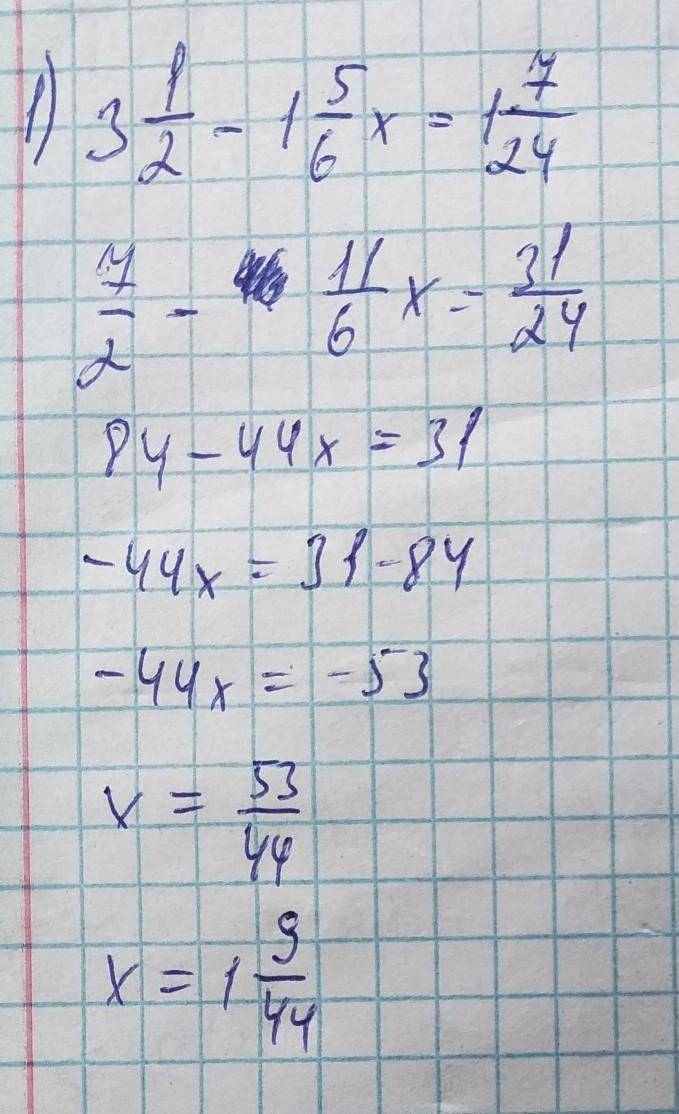 1) 3 1/2 - 1 5/6 x = 1 7/24
7/2 - 11/6 x = 31/24
84 - 44x = 31
-44x = 31 - 84
-44x = -53
x = 53/44
x = 1 9/44